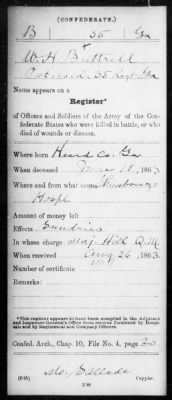 (CONFEDERATE.)
B 35 Ga
W. H. Buttrill
35 Regt Ga
Name appears on a
Register*
of Officers and Soldiers of the Army of the Con-
federate States who were killed in battle, or who
died of wounds or disease.
Where born Heard Co. Ga
When deceased 1863
Where and from what cause
Hospl
Amount of money left
Effects Sundries
In whose charge Maj. Hill Q.M.
When received Aug 26, 1863
Number of certificate
Remarks:
*This registry appears to have been compiled in the Adjutant
and Inspector General's Office from returns furnished by Hospi-
tals and by Regimental and Company Officers.
Confed. Arch., Chap. 10, File No. 4, page 20
(645) Copyist.